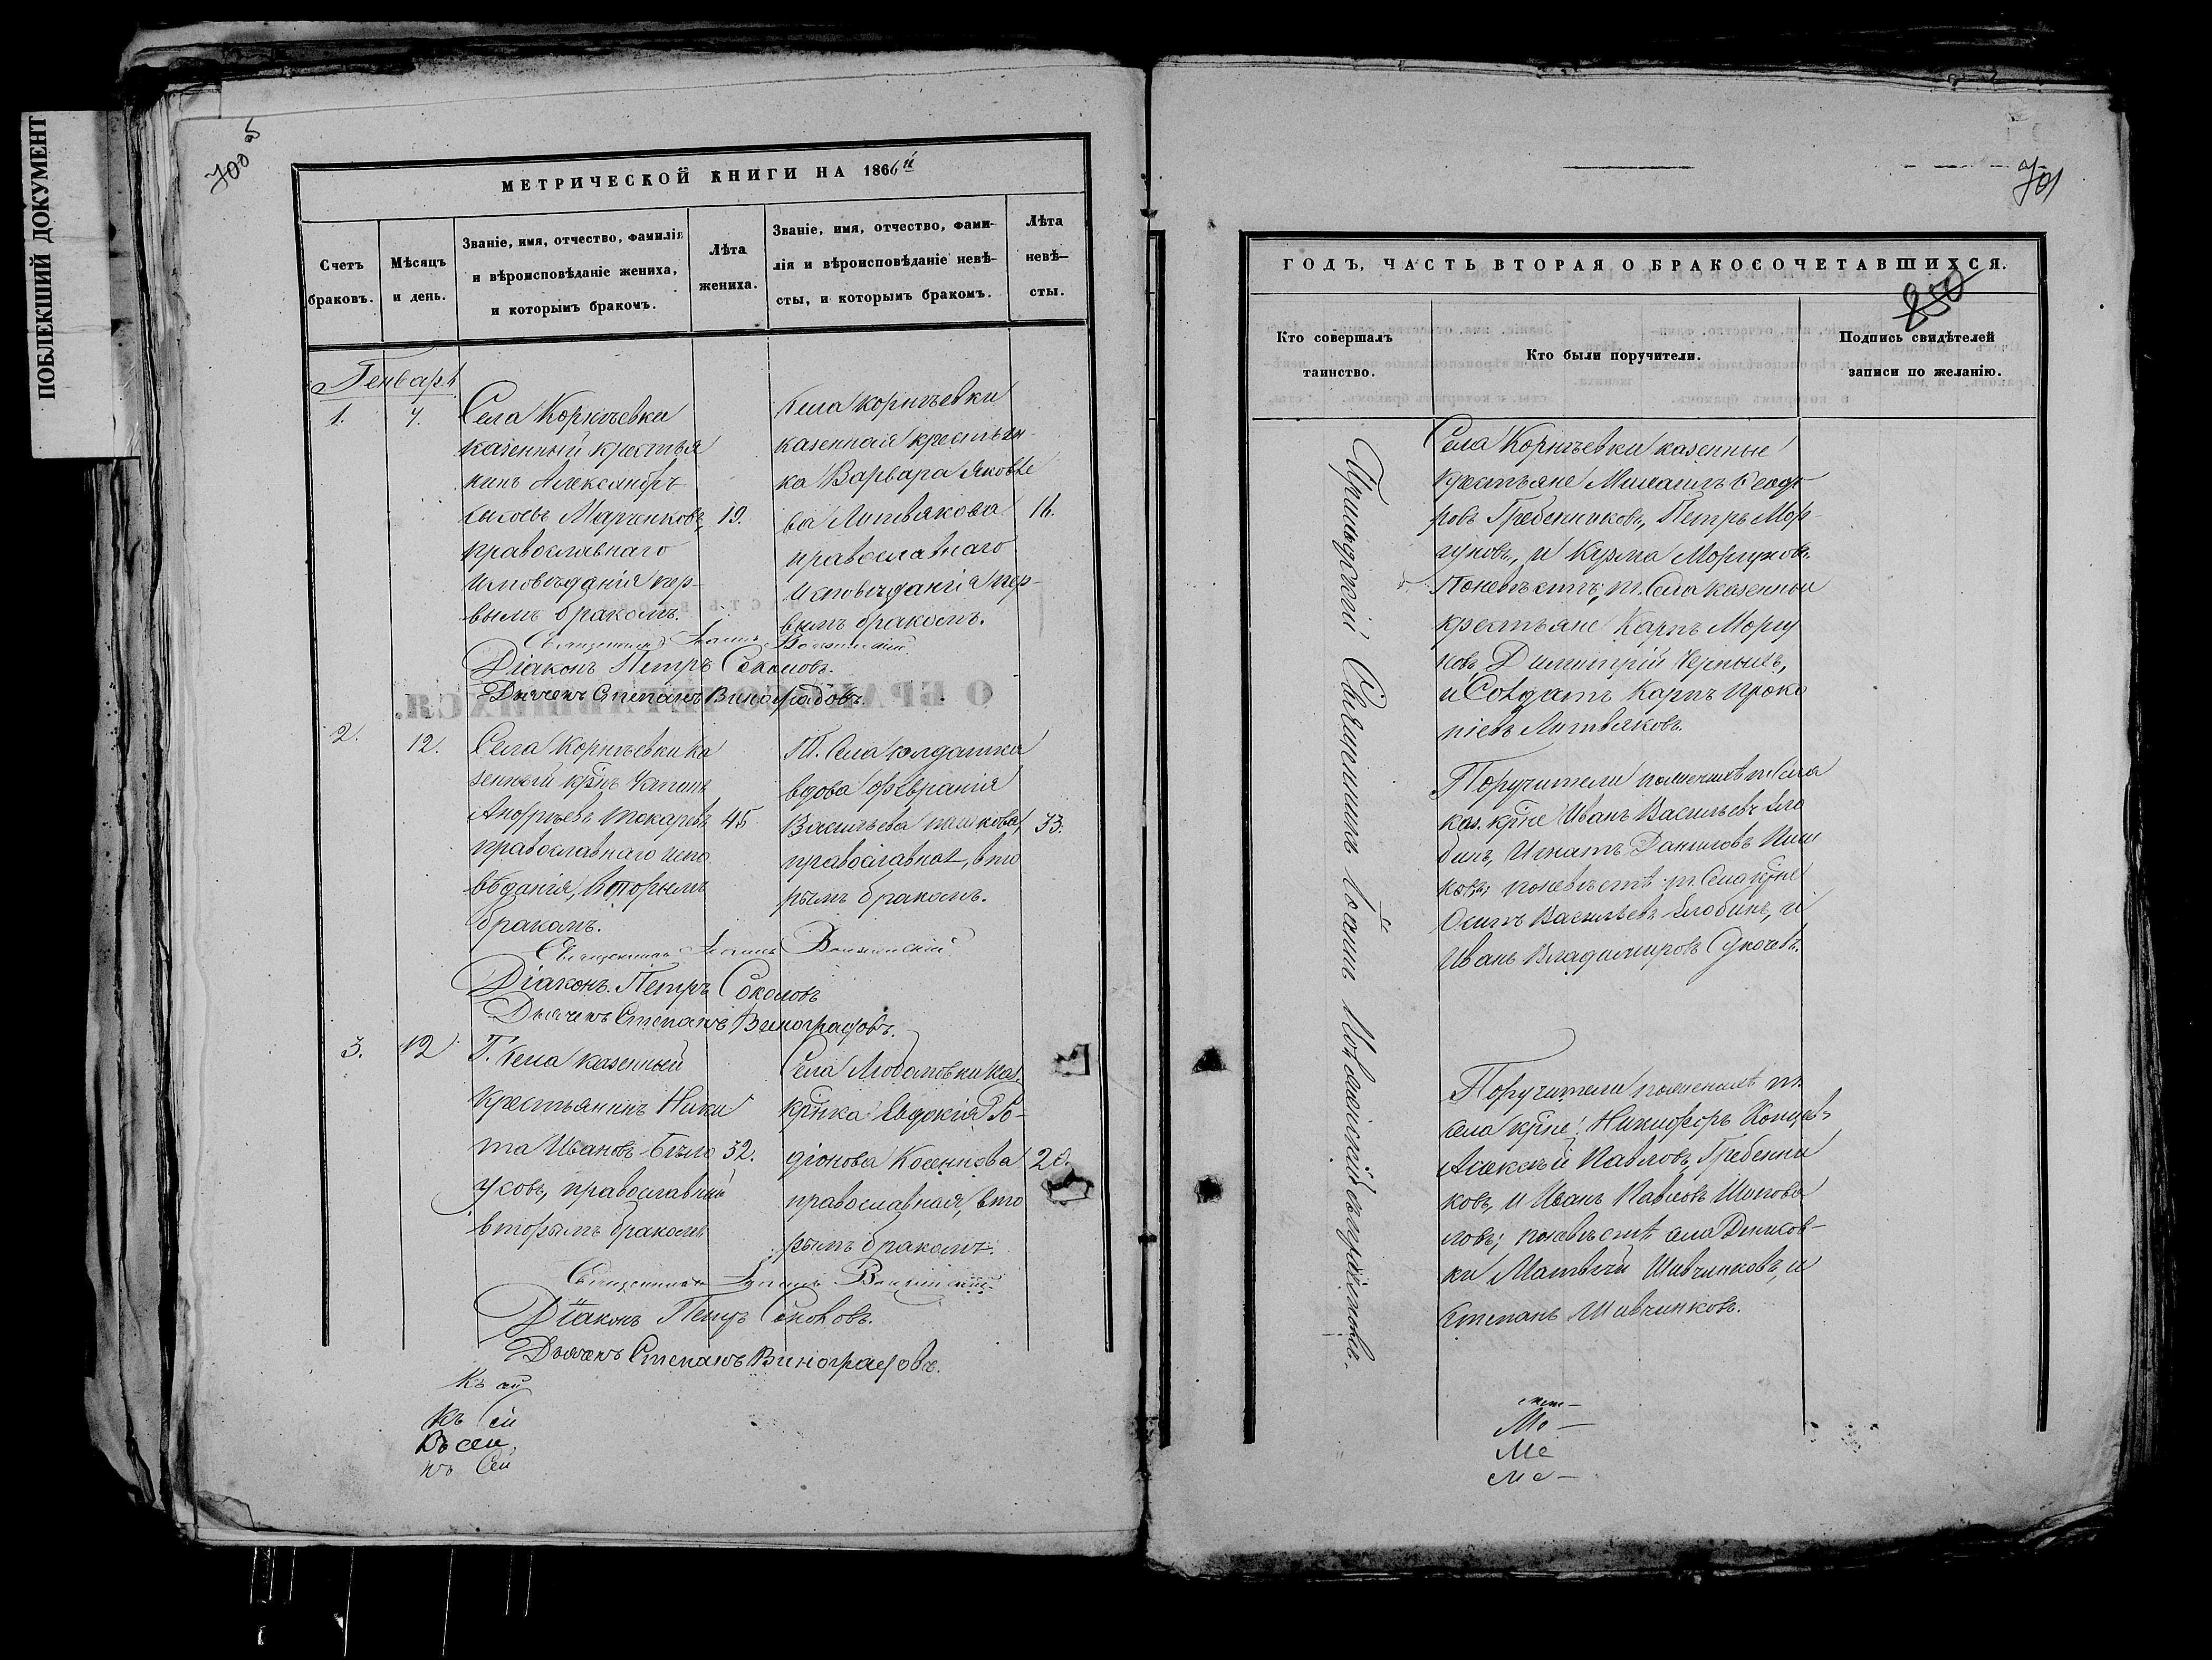 ПОБЛЕКШИЙ ДОКУМЕНТ
700 б
МЕТРИЧЕСКОЙ КНИГИ НА 1866й
Счетъ браковъ.
Мѣсяцъ и день.
Званіе, имя, отчество, фамилія
и вѣроисповѣданіе жениха,
и которымъ бракомъ.
Лѣта
жениха.
Званіе, имя, отчество, фами-
лія и вѣроисповѣданіе невѣ-
сты, и которымъ бракомъ.
Лѣта
невѣ-
сты.
Генварь
1.
7.
Села Корнѣевки
казенный крестья
нинъ Александръ
Марченковъ, 19.
православнаго
исповѣданія пер-
вымъ бракомъ.
Села Корнѣевки
казенная крестьян
ка Варвара Яковле
ва Литвякова 16.
православнаго
исповѣданія пер-
вымъ бракомъ.
Священникъ Іоаннъ
Діаконъ Петръ Соколовъ.
Дьячекъ Степанъ Виноградовъ.
2.
12.
Села Корнѣевки ка
зенный крнъ
Андреевъ Токаревъ 45
православнаго испо
вѣданія, вторымъ
бракомъ.
Т. Села солдатка
вдова Февранія
Васильева Пашкова, 33.
православная, вто
рымъ бракомъ.
Священникъ Іоаннъ
Діаконъ Петръ Соколовъ
Дьячекъ Степанъ Виноградовъ.
3.
12
Т. Села казенный
крестьянинъ Ники
та Ивановъ Бѣло 32.
усовъ, православный
вторымъ бракомъ
Села Любатовки каз.
крнка Евдокія Ро-
діонова Косенкова 20.
православная, вто
рымъ бракомъ.
Священникъ Іоаннъ
Діаконъ Петръ Соколовъ.
Дьячекъ Степанъ Виноградовъ.
Къ сей
Къ сей
Къ сей
Къ сей
701
ГОДЪ, ЧАСТЬ ВТОРАЯ О БРАКОСОЧЕТАВШИХСЯ.
250
Кто совершалъ
таинство.
Кто были поручители.
Подпись свидѣтелей
записи по желанію.
Приходскій Священникъ Іоаннъ
Села Корнѣевки казенные
крестьяне Михаилъ Ѳеодо
ровъ Гребенниковъ, Петръ Мор
гуновъ, и Кузма Моргуновъ.
По невѣстѣ, т. Села казенныи
крестьяне Карпъ Моргу
новъ, Димитрій Черныхъ,
и Солдатъ Карпъ Проко
піевъ Литвяковъ.
Поручители по женихѣ т. Села
каз. крне Иванъ Васильевъ Зло
бинъ, Игнатъ Даниловъ Паш
ковъ; по невѣстѣ т. Села крне
Осипъ Васильевъ Злобинъ, и
Иванъ Владимировъ
Поручители по женихѣ т.
села крне: Никифоръ
Алексѣй Павловъ Гребенни
ковъ, и Иванъ Павловъ Шапова
ловъ; по невѣстѣ села Денисов-
ки Матвѣй Шевченковъ, и
Степанъ Шевченковъ.
мет-
Ме-
Ме
Ме-